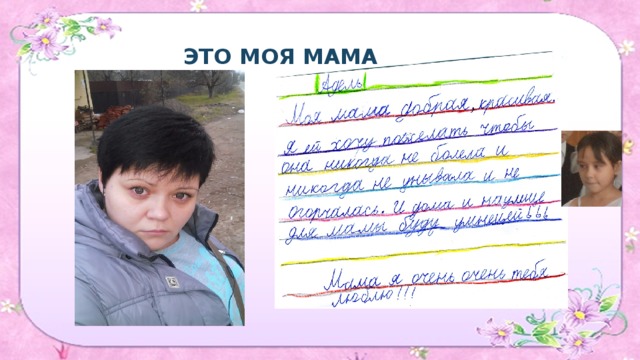 ЭТО МОЯ МАМА
Адель
Моя мама добрая, красивая.
Я ей хочу пожелать чтобы
она никогда не болела и
никогда не унывала и не
огорчалась. И дома и на улице
для мамы буду умницей!!!
Мама я очень очень тебя
люблю!!!